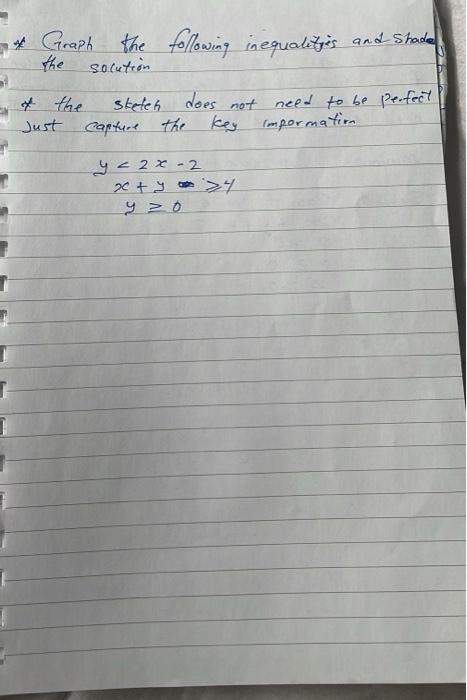 * Graph the following inequalityis and shade
the solution
* the sketch does not need to be perfect
Just capture the key impormation
y < 2x - 2
x + y ≥ 4
y ≥ 0